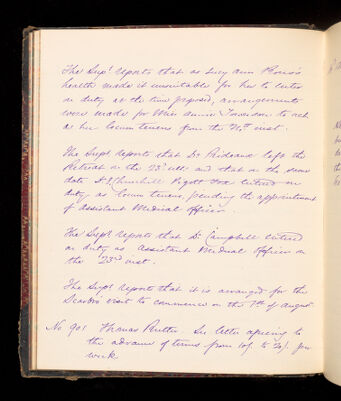 The Supt reports that as Lucy Ann
health made it unsuitable for her to enter
on duty at the time proposed, arrangements
were made for Miss Annie to act
as her locum tenens from the inst.
The Supt reports that Dr Rideaux left the
Retreat on the 23rd ult and that on the same
date Dr Churchill entered on
duty as locum tenens, pending the appointment
of Assistant Medical Officer.
The Supt reports that Dr Campbell entered
on duty as Assistant Medical Officer on
the 23rd inst.
The Supt reports that it is arranged for the
visit to commence on the 7th of August
No 901 Thomas Rutter. See letter agreeing to
the advance of terms from 10/ to per
week